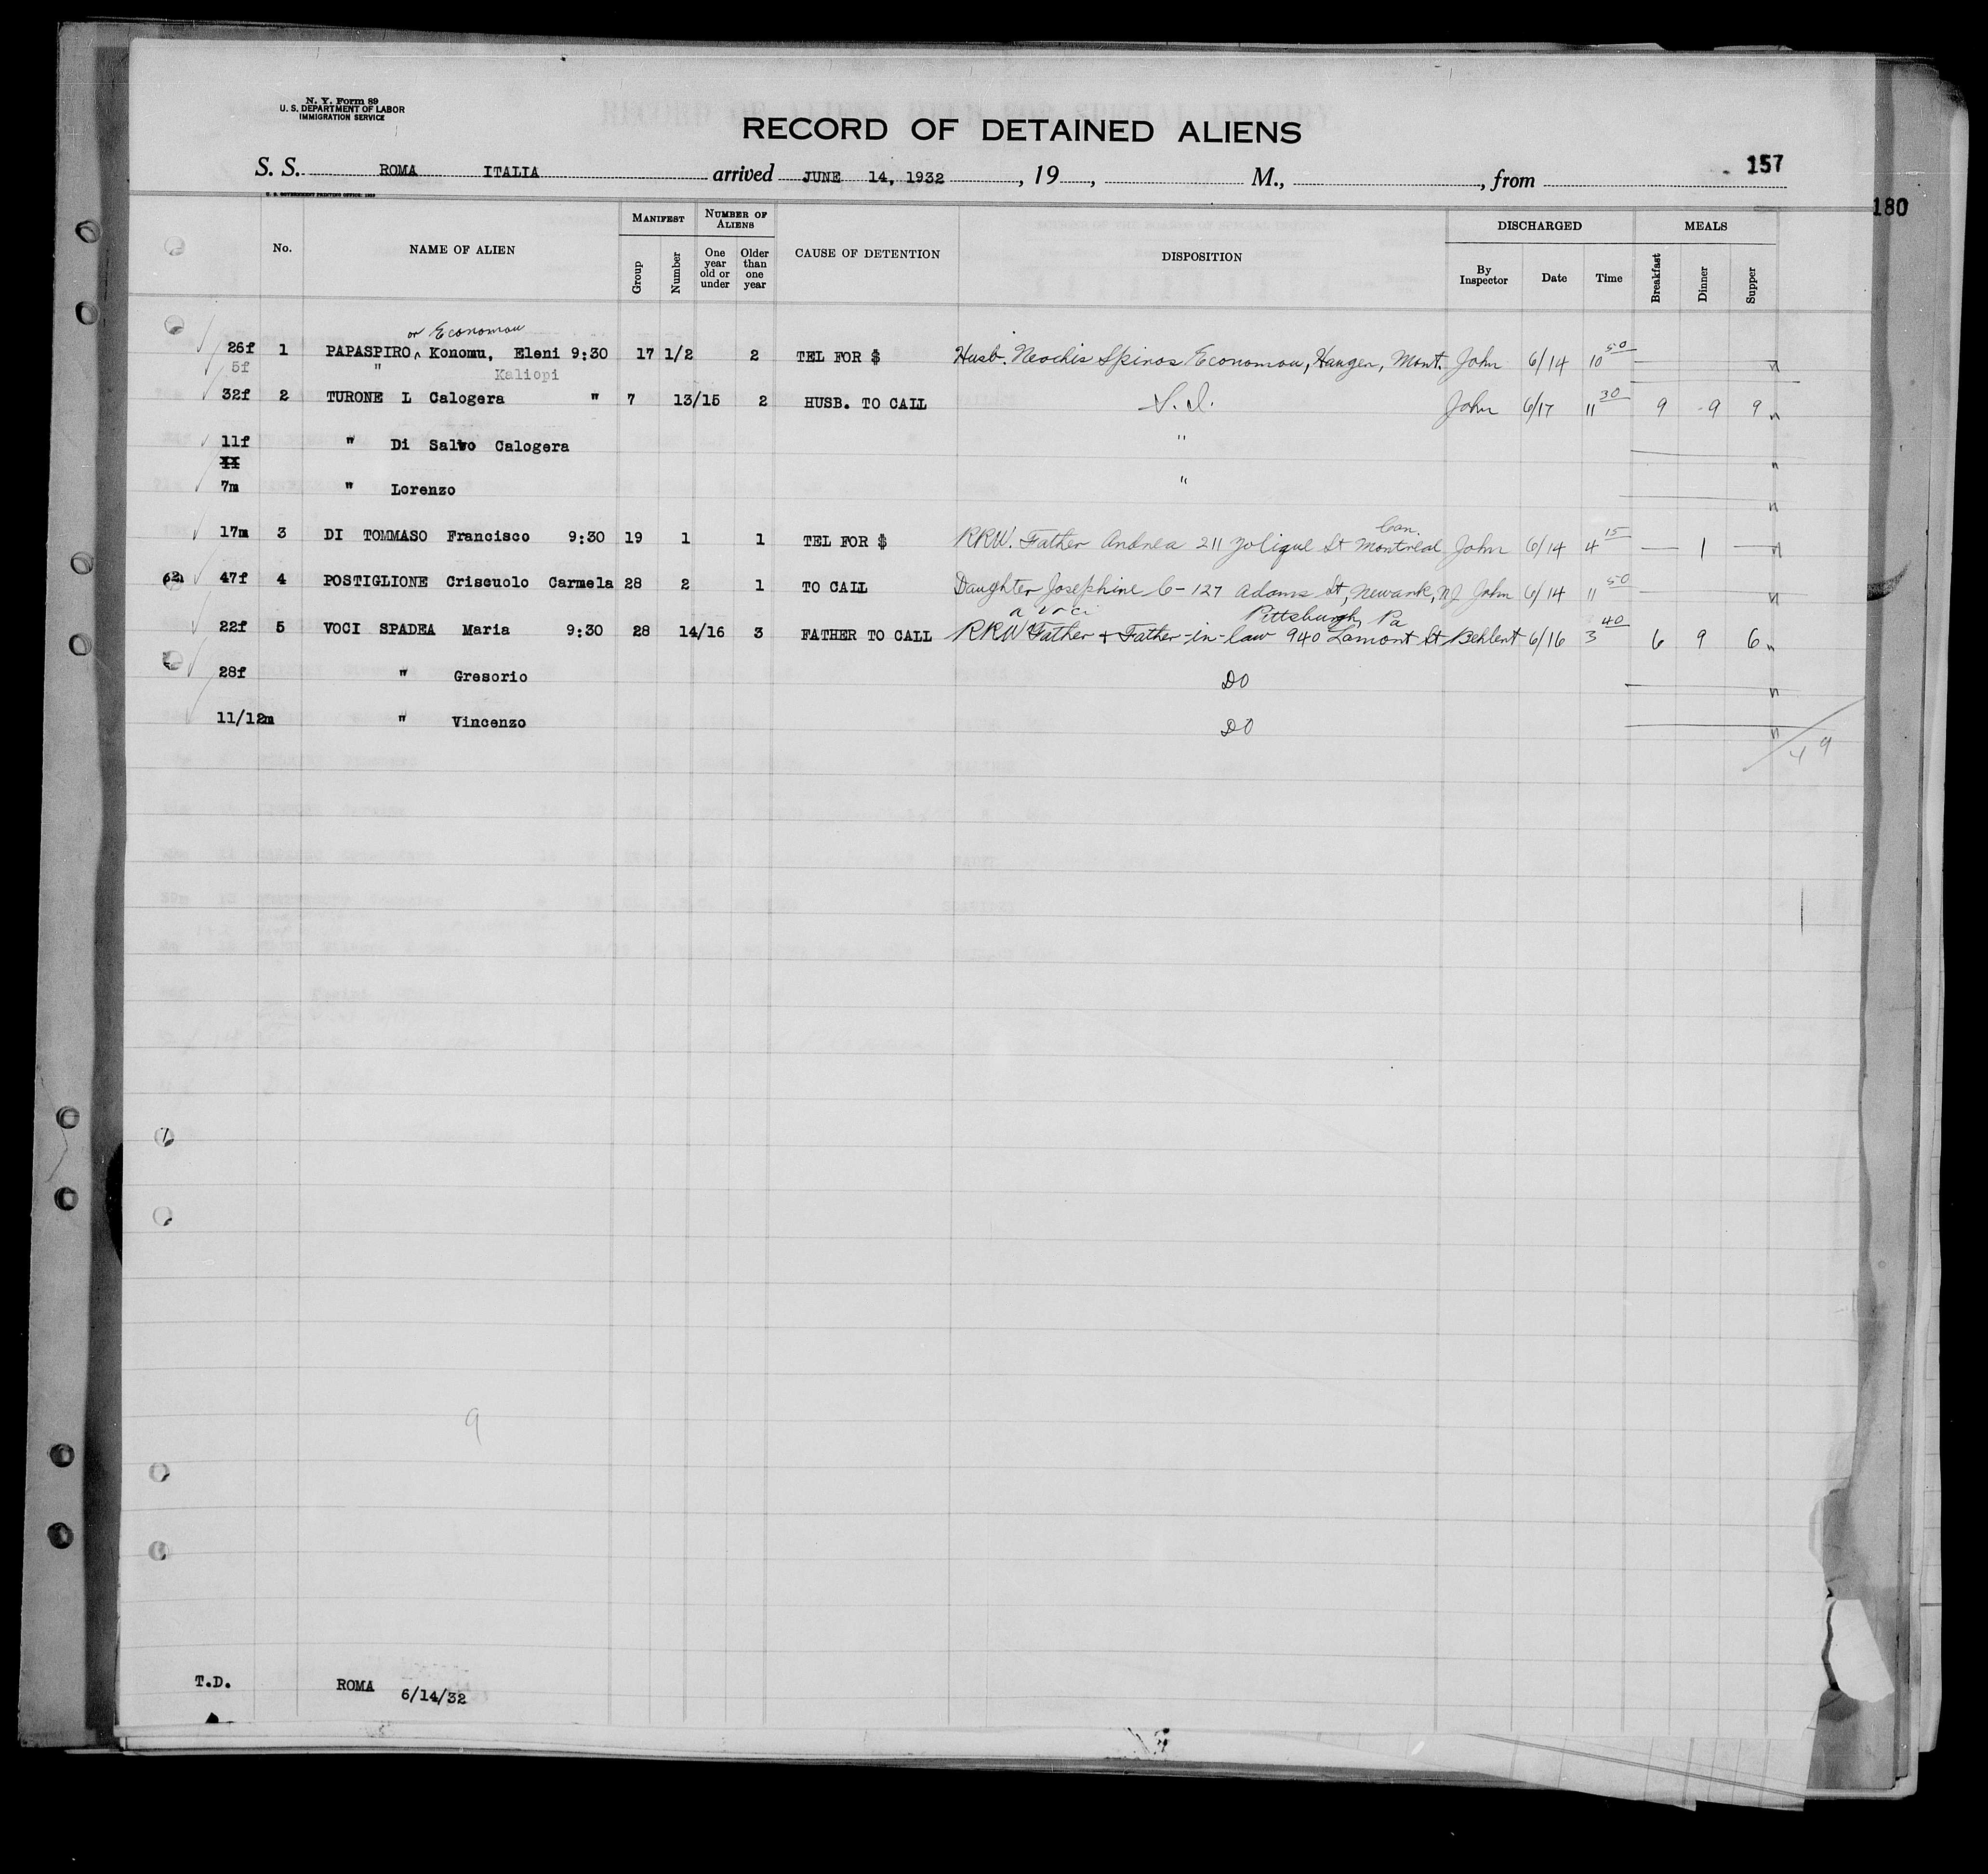 N. Y. Form 89
U. S. DEPARTMENT OF LABOR
IMMIGRATION SERVICE
RECORD OF DETAINED ALIENS
157
S. S. ROMA ITALIA arrived JUNE 14, 1932, 19 , M., , from
U. S. GOVERNMENT PRINTING OFFICE: 1929
180
No. NAME OF ALIEN MANIFEST Group Number NUMBER OF ALIENS One year old or under Older than one year CAUSE OF DETENTION DISPOSITION DISCHARGED By Inspector Date Time MEALS Breakfast Dinner Supper
or Economou
26f 1 PAPASPIRO ^ Konomu, Eleni 9:30 17 1/2 2 TEL FOR $ Husb. Neochis Spiros Economou, Haugen, Mont. John 6/14 10 50
5f " Kaliopi
32f 2 TURONE L Calogera " 7 13/15 2 HUSB. TO CALL S.I. John 6/17 11 30 9 9 9
11f " Di Salvo Calogera "
11
7m " Lorenzo "
17m 3 DI TOMMASO Francisco 9:30 19 1 1 TEL FOR $ RRW. Father Andrea 211 Zolique St Montreal Can. John 6/14 4 15 — 1 —
47f 4 POSTIGLIONE Criscuolo Carmela 28 2 1 TO CALL Daughter Josephine C- 127 Adams St, Newark, NJ John 6/14 11 50
Pittsburgh, Pa
22f 5 VOCI SPADEA Maria 9:30 28 14/16 3 FATHER TO CALL RRW Father + Father-in-law 940 Lamont St Behlent 6/16 3 40 6 9 6
28f " Gresorio DO
11/12m " Vincenzo DO
9
9
T.D. ROMA 6/14/32